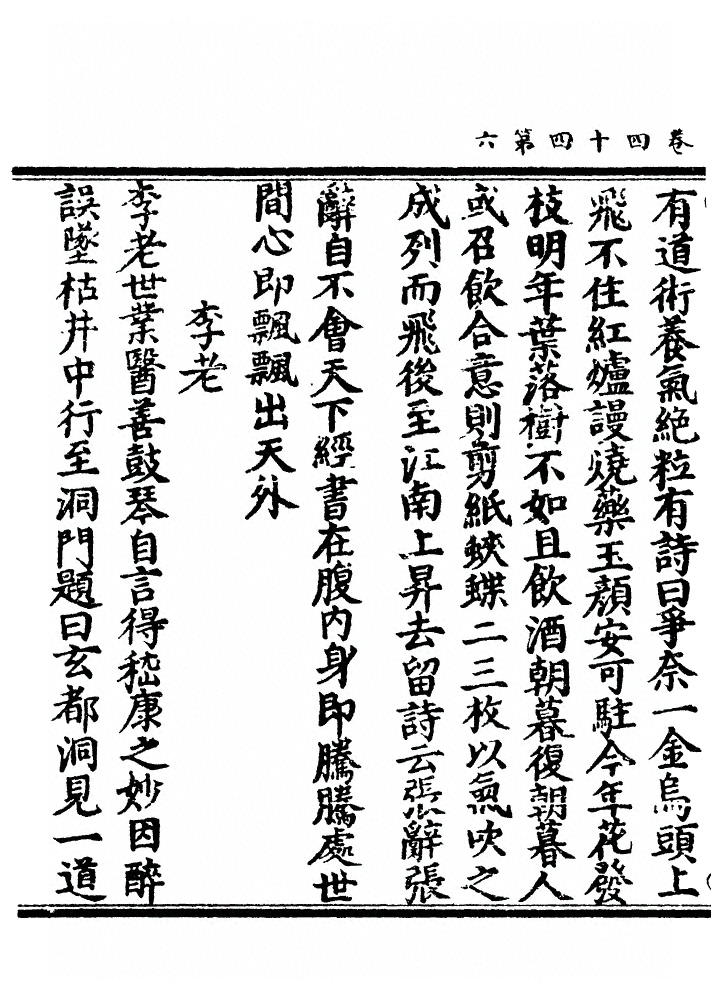 卷四十四第六
有道術養氣絶粒有詩曰爭奈一金烏頭上
飛不住紅爐謾燒藥玉顏安可駐今年花發
枝明年葉落樹不如且飲酒朝暮復朝暮人
或召飲合意則剪紙蛺蝶二三枚以氣吹之
成列而飛後至江南上昇去留詩云張辭張
辭自不會天下經書在腹內身即騰騰處世
間心即飄飄出天外
李老
李老世業醫善鼓琴自言得嵇康之妙因醉
誤墜枯井中行至洞門題曰玄都洞見一道